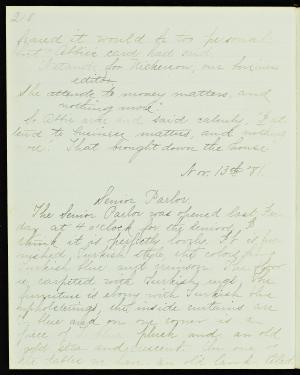 218
feared it would be too personal
but Abbie's card had said
I stands for Nickerson, our business
editor
She attends to money matters, and
nothing more"
So Abbie arose and said calmly, "I at
tend to business matters, and nothing
more." That brought down the house
Nov. 13th '81.
Senior Parlor.
The Senior Parlor was opened last Fri
day at 4 o'clock to the seniors. I
think it is perfectly lovely. It is fur
nished, Turkish style, the colors being
Turkish blue and crimson. The floor
is carpeted with Turkish rugs. The
furniture is ebony with Turkish blue
upholsterings, the inside curtains are
of blue and on one corner is a
piece of plush and an old
gold star and crescent.
the table we have an old